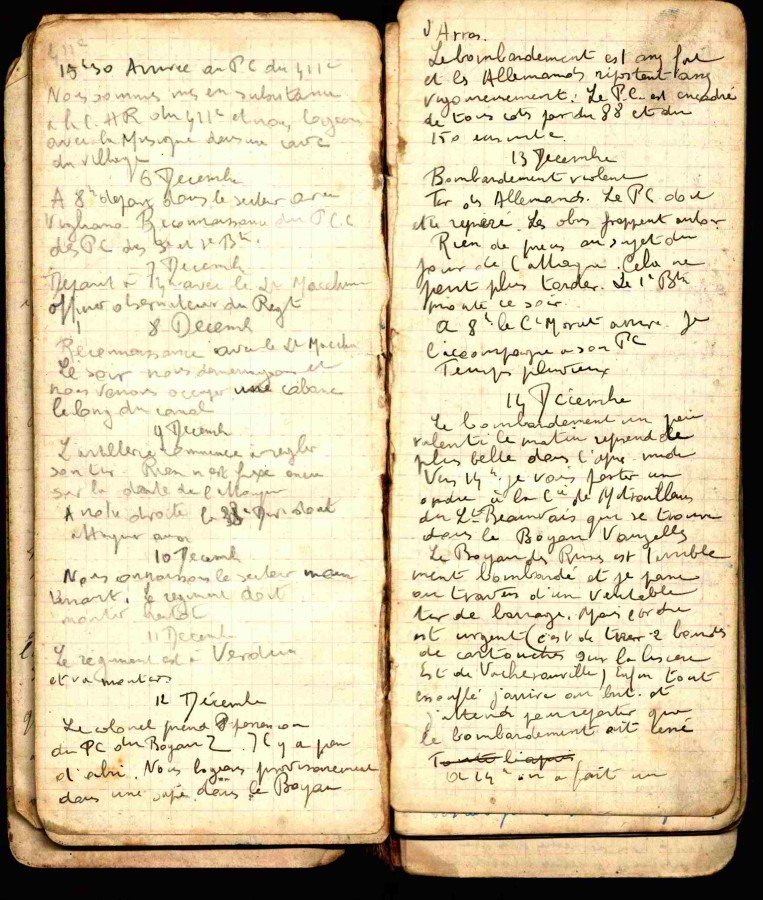 411e
15h30 Arrivée au PC du 411e
Nous sommes mis en subsistance
à la C.HR du 411e et nous logeons
avec la Musique dans une cave
du village
6 Decembre
A 8h depart dans le secteur avec
Reconnaissance du P.C.
des PC des et 1e Btn.
7 Decembre
Depart à 7h avec le Lt
officier observateur du Regt
8 Decembre
Reconnaissance avec le Lt
Le soir nous demenageons et
nous venons occuper une cabane
le long du canal
9 Decemb
L'artillerie commence à regler
son tir. Rien n'est fixé encore
sur la date de l'attaque
A notre droite la 38e Div doit
attaquer aussi
10 Decemb
Nous connaissons le secteur main
tenant. Le regiment doit
monter bientot
11 Decemb
Le regiment est à Verdun
et va monter
12 Décembre
Le colonel prend possession
du PC du Boyau 2. Il y a peu
d'abri. Nous logeons provisoirement
dans une sape dans le Boyau
d'Arras.
Le bombardement est assez fort
et les Allemands ripostent assez
vigoureusement. Le P.C. est encadré
de tous cotés par du 88 et du
150 ensuite.
13 Decembre
Bombardement violent
Tir des Allemands. Le PC doit
etre reperé. Les obus frappent autour
Rien de precis au sujet du
jour de l'attaque. Cela ne
peut plus tarder. Le 1e Btn
monte ce soir.
A 8h le Ct arrive. Je
l'accompagne à son PC
Temps pluvieux
14 Decembre
Le bombardement un peu
ralenti le matin reprend de
plus belle dans l'apres midi
Vers 14h je vais porter un
ordre à la Cie de Mitrailleuses
du Lt Beauvais qui se trouve
dans le Boyau Vauzelles
Le Boyau des Ruines est terrible
ment bombardé et je passe
au travers d'un veritable
tir de barrage. Mais l'ordre
est urgent (c'est de tirer 2 bandes
de cartouches sur la lisiere
Est de Vacherauville) Enfin tout
essouflé j'arrive au but et
j'attends pour repartir que
le bombardement ait cessé
A 14h on a fait un